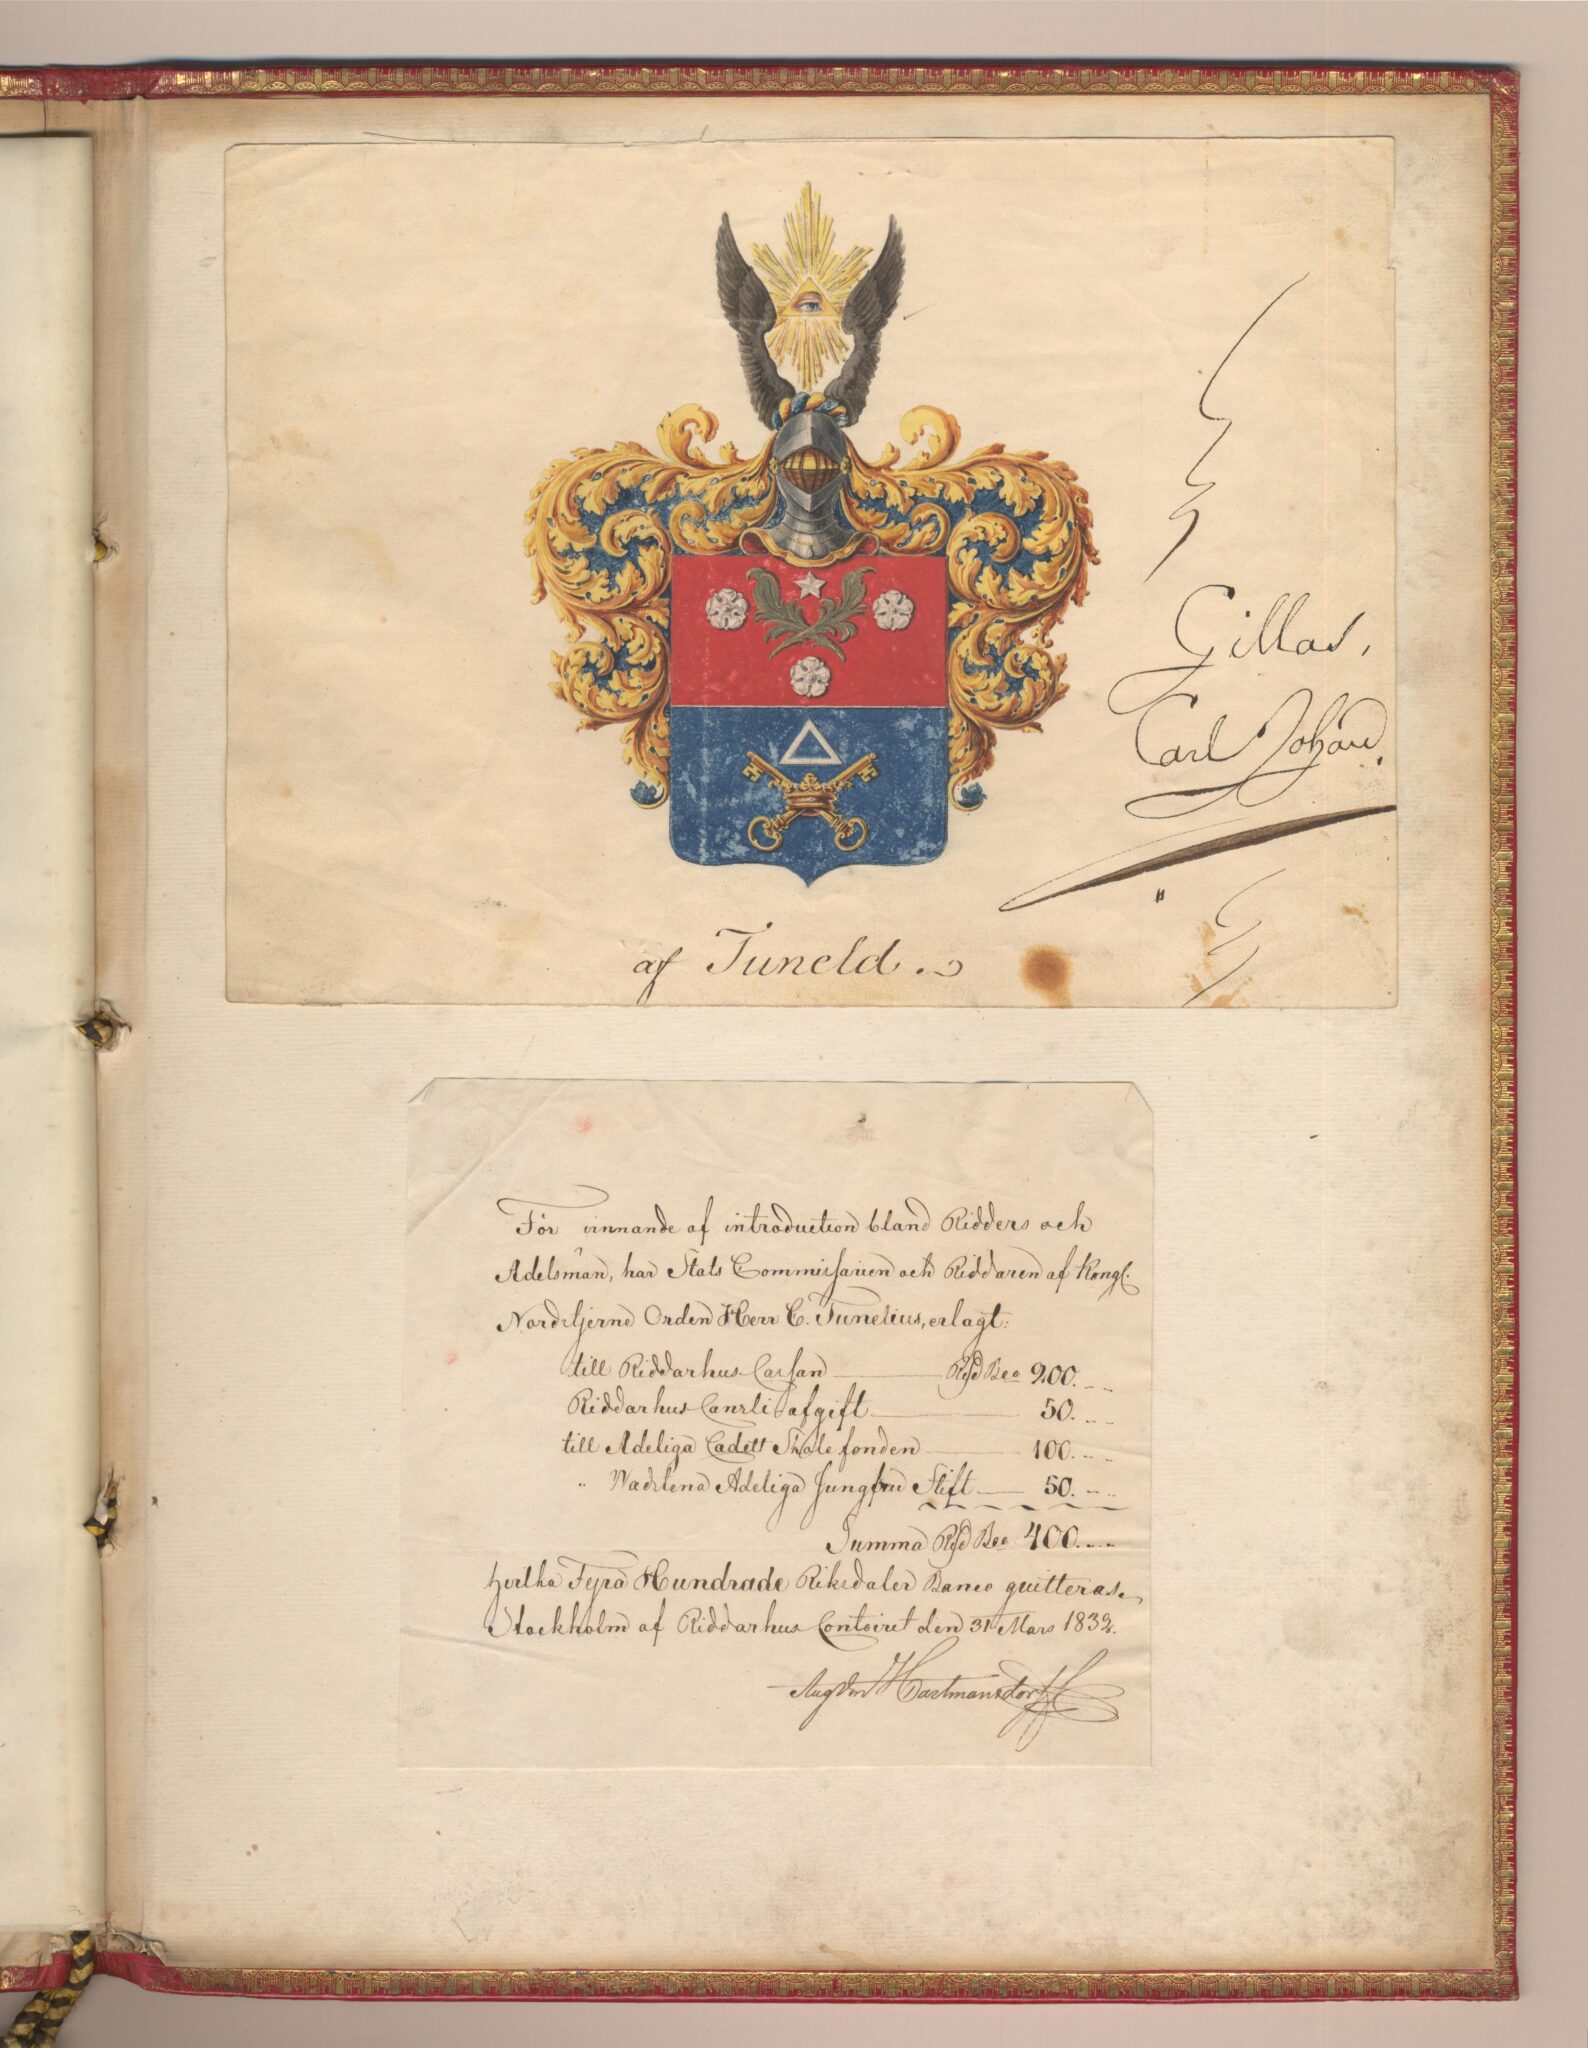 Gillas,
Carl Johan.
af Tuneld.
För vinnande af introduction bland Ridders och
Adelsmän, har Stats Commissarien och Riddaren af Kongl.
Nordstjerne Orden Herr C. Tunelius, erlagt:
till Riddarhus Cassan Rd Bco 200.
Riddarhus Canzli afgift 50.
till Adeliga Cadett Skole fonden 100.
" Wadstena Adeliga Jungfru Stift 50.
Summa Rd Bco 400.
hvilka Fyra Hundrade Riksdaler Banco quitteras.
Stockholm af Riddarhus Contoiret den 31 Mars 1832.
Aug von Hartmansdorff